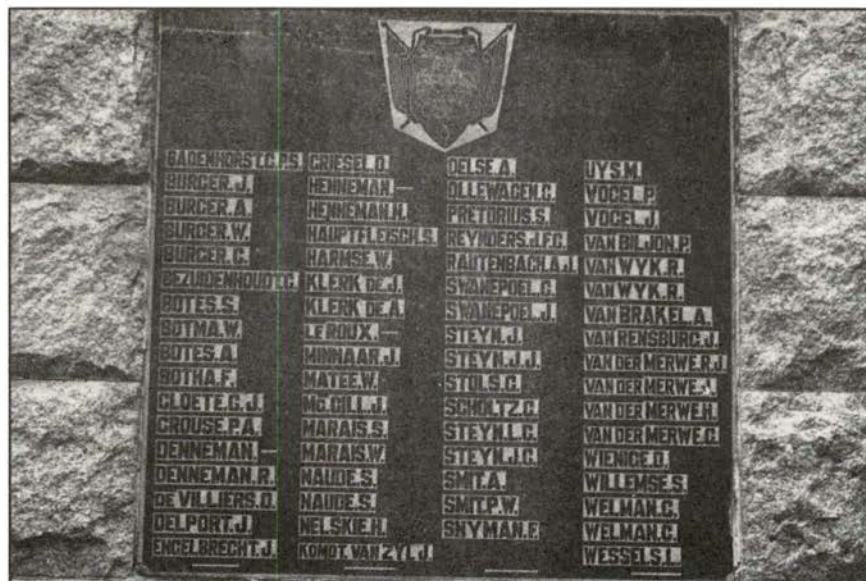 BADENHORST.C.P.S.
BURGER.J.
BURGER.A.
BURGER.W.
BURGER.C.
BEZUIDENHOUDT.C.
BOTES.S.
BOTMA.W.
BOTES.A.
BOTHA.F.
CLOETE.C.J.
CROUSE.P.A.
DENNEMAN.—
DENNEMAN.R.
DE VILLIERS.O.
DELPORT.J.
ENGELBRECHT.J.
GRIESEL.D.
HENNEMAN.—
HENNEMAN.H.
HAUPTFLEISCH.S.
HARMSE.W.
KLERK DE.J.
KLERK DE.A.
LE ROUX.—
MINNAAR.J.
MATEE.W.
Mc.GILL.J.
MARAIS.S.
MARAIS.W.
NAUDE.S.
NAUDE.S.
NELSKIE.H.
KOMDT.VAN ZYL.J.
OELSE.A.
OLLEWAGEN.C.
PRETORIUS.S.
REYNDERS.J.F.C.
RAUTENBACH.A.J.
SWANEPOEL.C.
SWANEPOEL.J.
STEYN.J.
STEYN.J.J.
STOLS.C.
SCHOLTZ.C.
STEYN.L.C.
STEYN.J.C.
SMIT.A.
SMIT.P.W.
SNYMAN.F.
UYS.M.
VOGEL.P.
VOGEL.J.
VAN BILJON.P.
VAN WYK.R.
VAN WYK.R.
VAN BRAKEL.A.
VAN RENSBURG.J.
VAN DER MERWE.R.J.
VAN DER MERWE.
VAN DER MERWE.H.
VAN DER MERWE.C.
WIENICE.D.
WILLEMSE.S.
WELMAN.C.
WELMAN.C.
WESSELS.L.